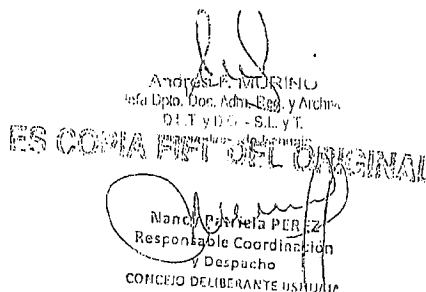 Andrés F. MORINO
Jefa Dpto. Doc. Adm. Reg. y Archivo
D.L.T y D.G. - S.L. y T.
ES COPIA FIEL DEL ORIGINAL
Nancy Patricia PEREZ
Responsable Coordinación
y Despacho
CONCEJO DELIBERANTE USHUAIA